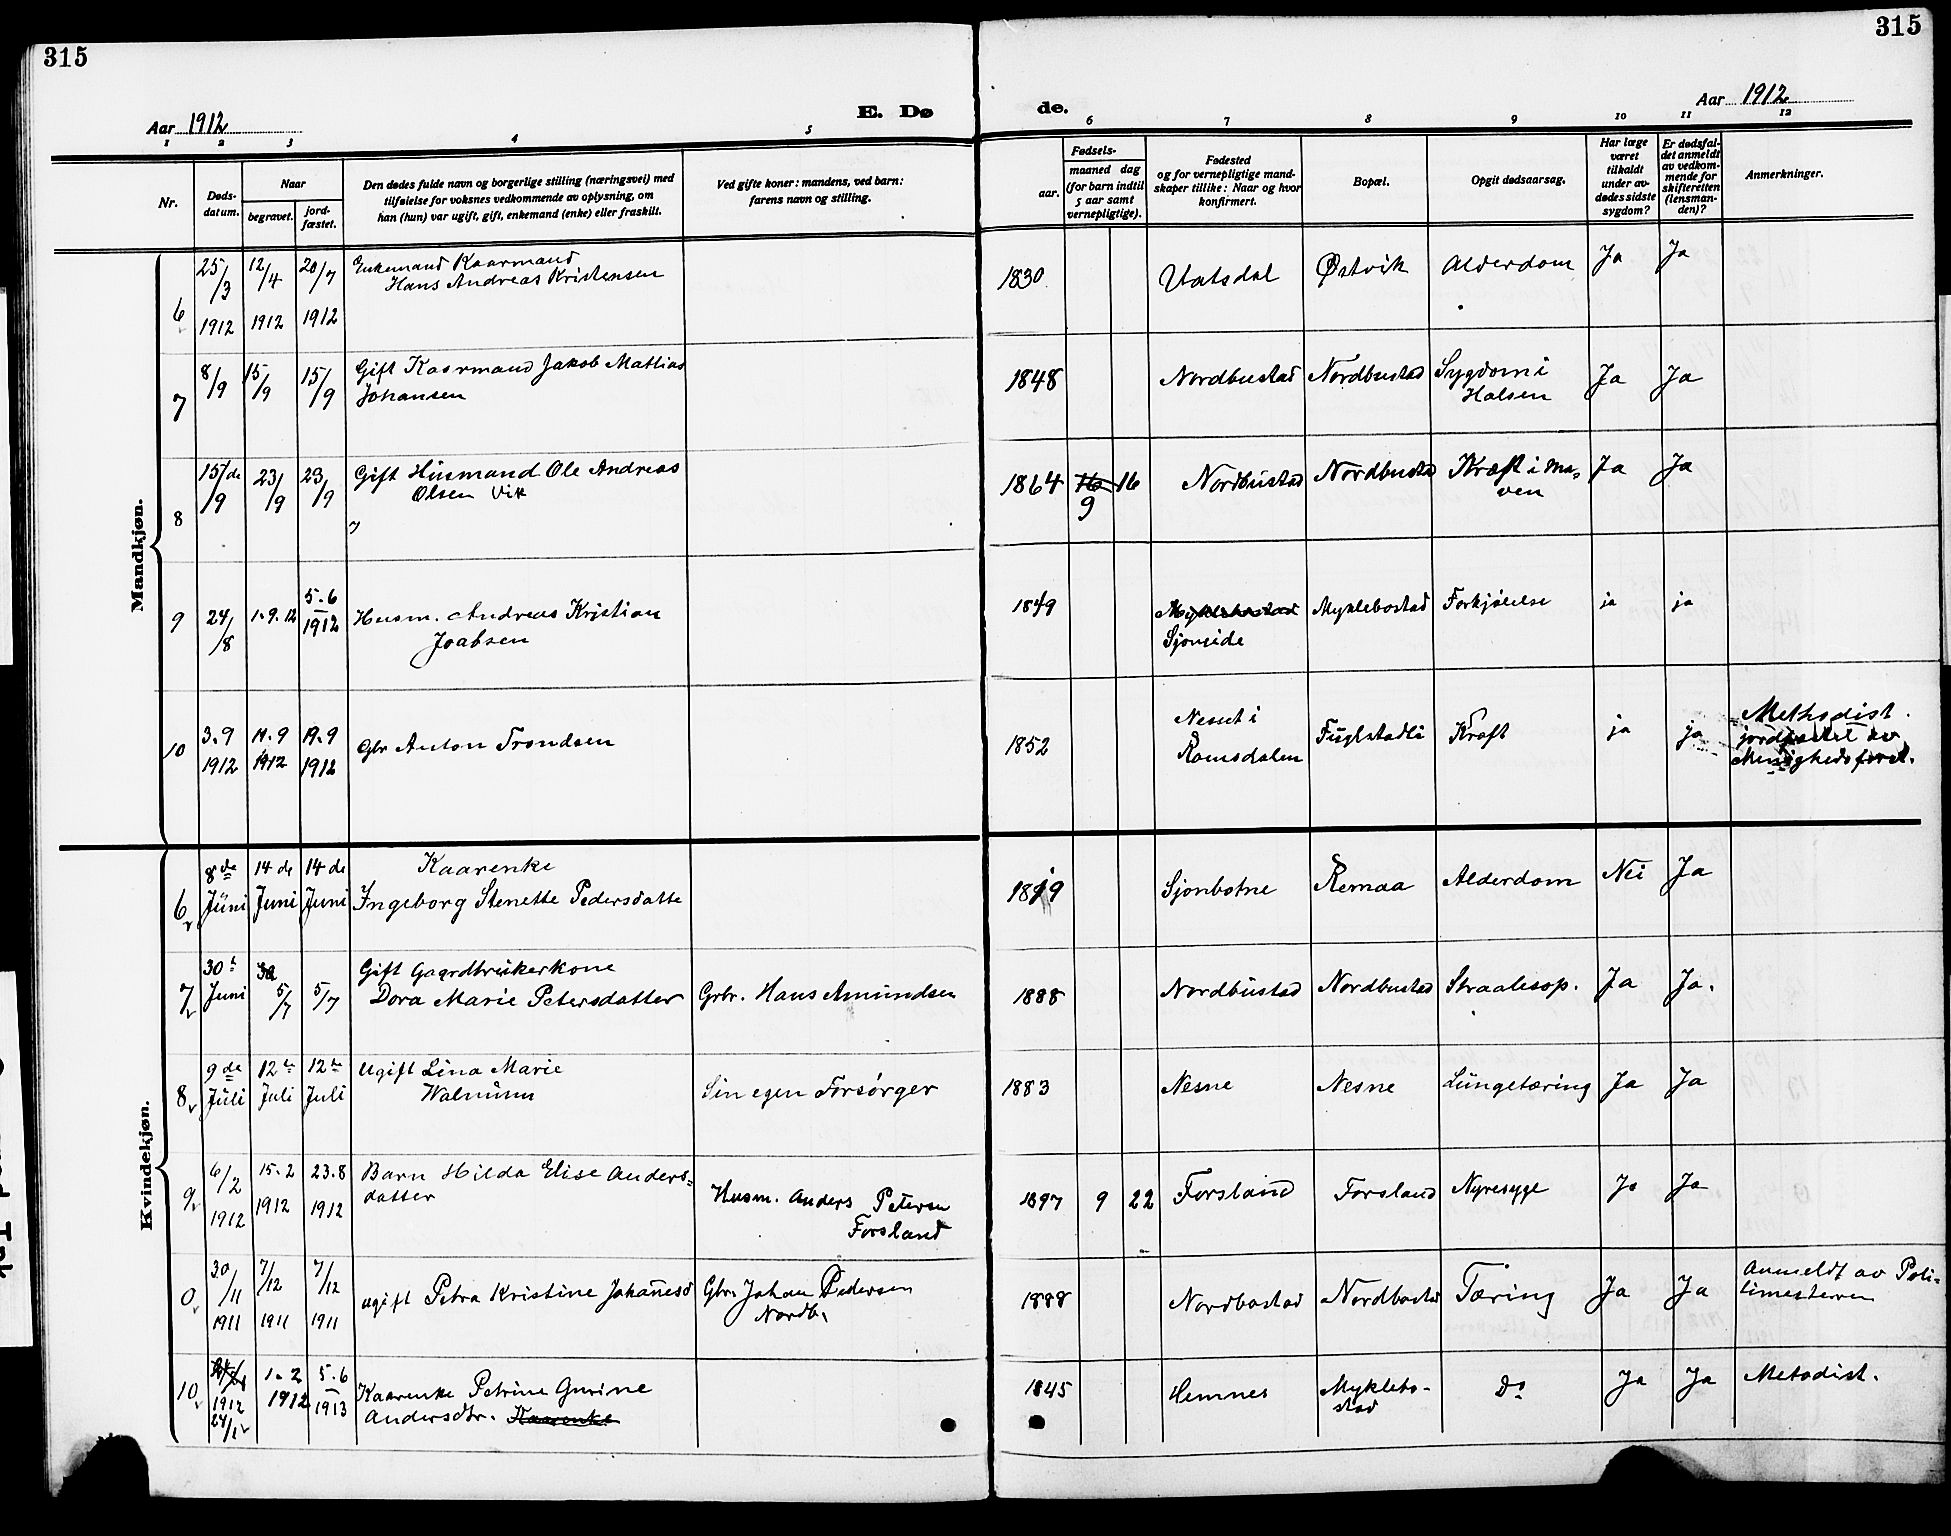 315
315
Aar 1912
E. Dø
de.
Aar 1912
1 2 3 4 5 6 7 8 9 10 11 12
Nr.
Døds-
datum.
Naar
begravet.
jord-
fæstet.
Den dødes fulde navn og borgerlige stilling (næringsvei) med
tilføielse for voksnes vedkommende av oplysning, om
han (hun) var ugift, gift, enkemand (enke) eller fraskilt.
Ved gifte koner: mandens, ved barn:
farens navn og stilling.
Fødsels-
aar.
maaned dag
(for barn indtil
5 aar samt
vernepligtige).
Fødested
og for vernepligtige mand-
skaper tillike: Naar og hvor
konfirmert.
Bopæl.
Opgit dødsaarsag.
Har læge
været
tilkaldt
under av-
dødes sidste
sygdom?
Er dødsfal-
det anmeldt
av vedkom-
mende for
skifteretten
(lensman-
den)?
Anmerkninger.
Mandkjøn.
6 25/3 1912 12/4 1912 20/7 1912
Enkemand Kaarmand
Hans Andreas Kristensen
1830 Utatsdal Østvik Alderdom Ja Ja
7 8/9 15/9 15/9
Gift Kaarmand Jakob Mattias
Johansen
1848 Nordbustad Nordbustad Sygdom i
Halsen
Ja Ja
8 15/9 de 23/9 23/9
Gift Husmand Ole Andreas
Olsen Vik
1864 16 9 16 Nordbustad Nordbustad Kræft i Ma-
ven
Ja Ja
9 24/8 1.9.12 5.6 1912
Husm. Andreas Kristian
Joabsen
1849 Myklebostad
Sjoneide
Myklebostad Forkjølelse ja ja
10 3.9 1912 19.9 1912 19.9 1912
Gbr Anton Trondsen
1852 Nesset i
Romsdalen
Fuglstadli Kræft ja ja
Methodist.
jordfæstet av
Menighedsforst.
Kvindekjøn.
6 8de Juni 14 de Juni 14 de Juni
Kaarenke
Ingeborg Stenette Pedersdatte
1819 Sjonbotne Remaa Alderdom Nei Ja
7 30 Juni 5/7 5/7
Gift Gaardbrukerkone
Dora Marie Petersdatter
Grbr. Hans Amundsen
1888 Nordbustad Nordbustad Straalesop. Ja Ja.
8 9 de Juli 12 Juli 12 Juli
Ugift Lina Marie
Walnum
Sin egen Forsørger
1883 Nesne Nesne Lungetæring Ja Ja
9 6/2 1912 15.2 1912 23.8 1912
Barn Hilda Elise Anders-
datter
Husm. Anders Petersen
Forsland
1897 9 22 Forsland Forsland Nyresyge Ja Ja
0 30/11 1911 7/12 1911 7/12 1911
Ugift Petra Kristine Johanesd
Gbr. Johan Pedersen
Nordb.
1888 Nordbostad Nordbostad Tæring Ja Ja
Anmeldt av Poli-
timesteren
10 1912 24/1 1.2 1912 5.6 1913
Kaarenke Petrine Gurine
Andersdtr. Kaarenke
1845 Hemnes Myklebo-
stad
Do Ja Ja Metodist.